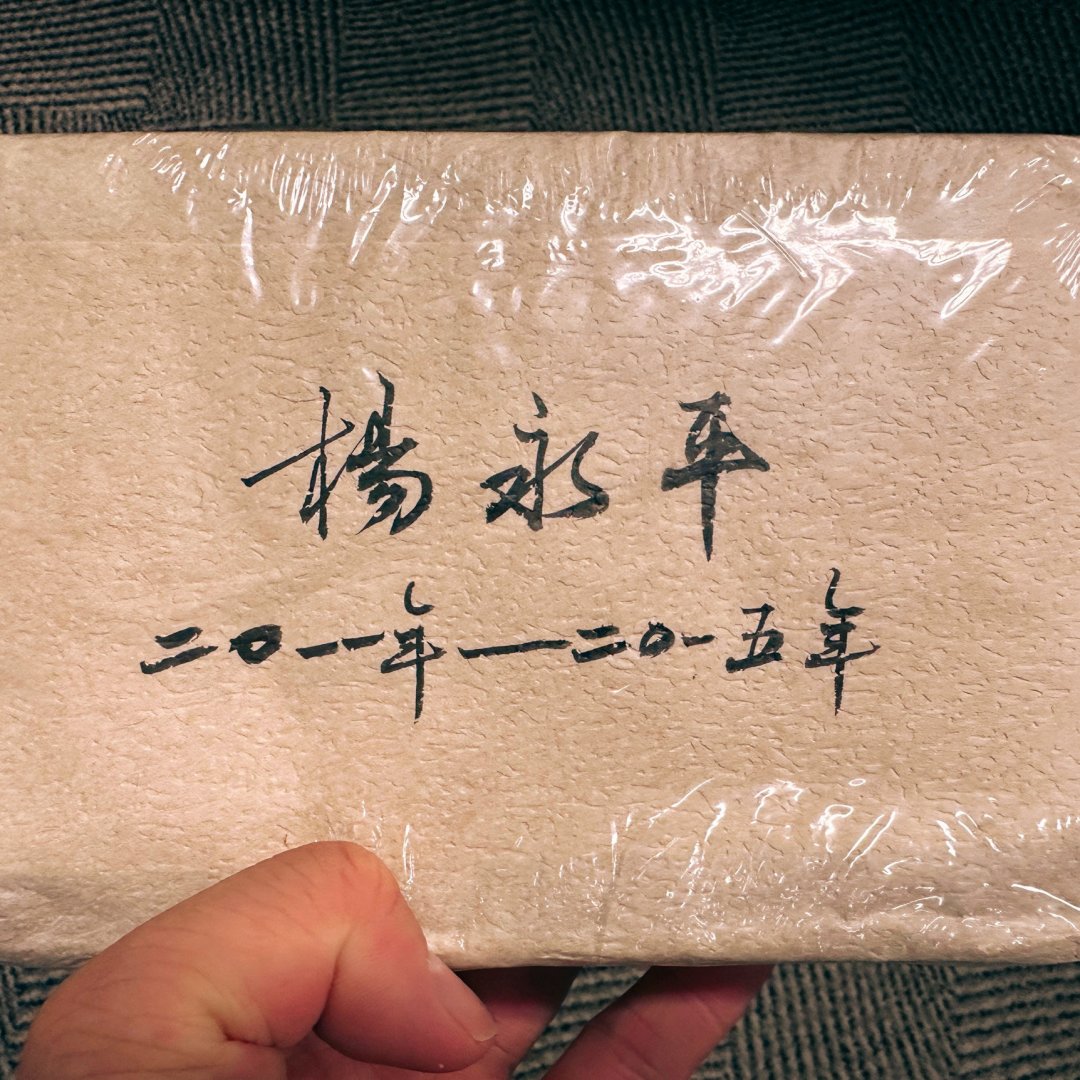 楊永平
二〇一一年—二〇一五年